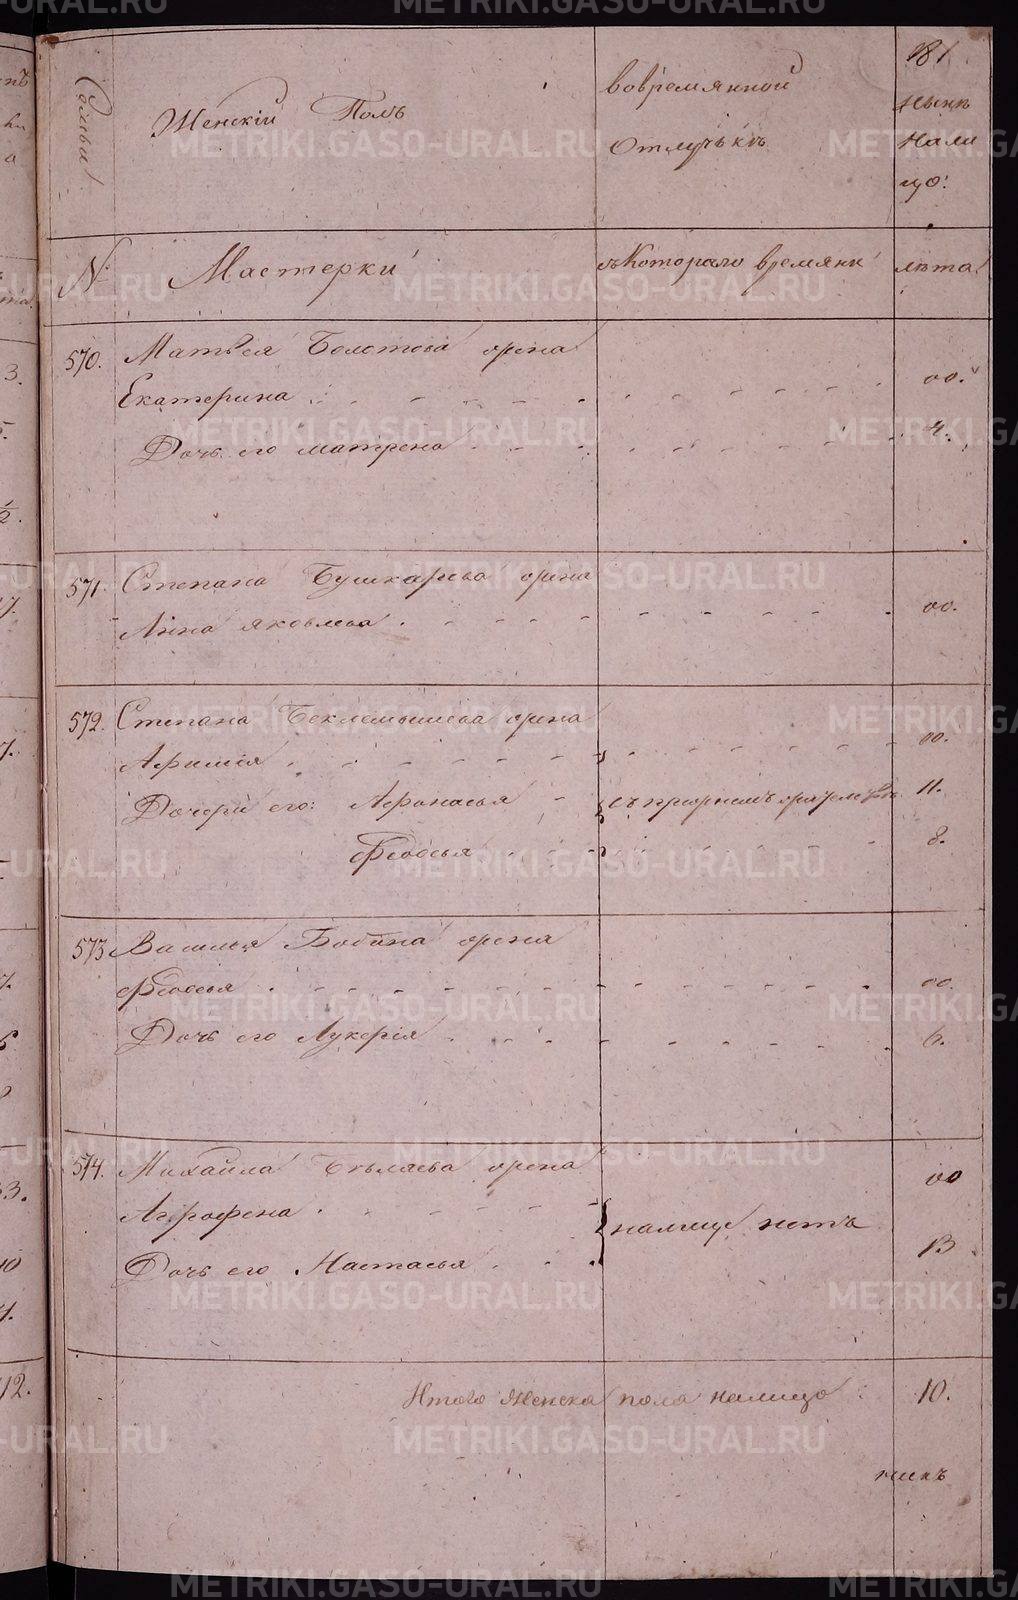 181
Семьи
Женскій Полъ
вовремянной
отлучькѣ
нынѣ
нали
цо:
№
Мастерки
съ Котораго времяни
лѣта
570.
Матвея Болотова жена
Екатерина
00.
Дочь его матрена
4.
571.
Степана Бушкарева жена
Анна яковлева
00.
572.
Степана Беклемышева жена
Афимія
00.
Дочери его: Афонасья
11.
Федосья
8.
573
Василья Бобина жена
Федосья
00.
Дочь его Лукерія
6.
574.
Михайла Бѣляева жена
00
Агрофена
налицо нетъ
Дочь его Настасья
13
Итого Женска пола налицо
10.
METRIKI.GASO-URAL.RU